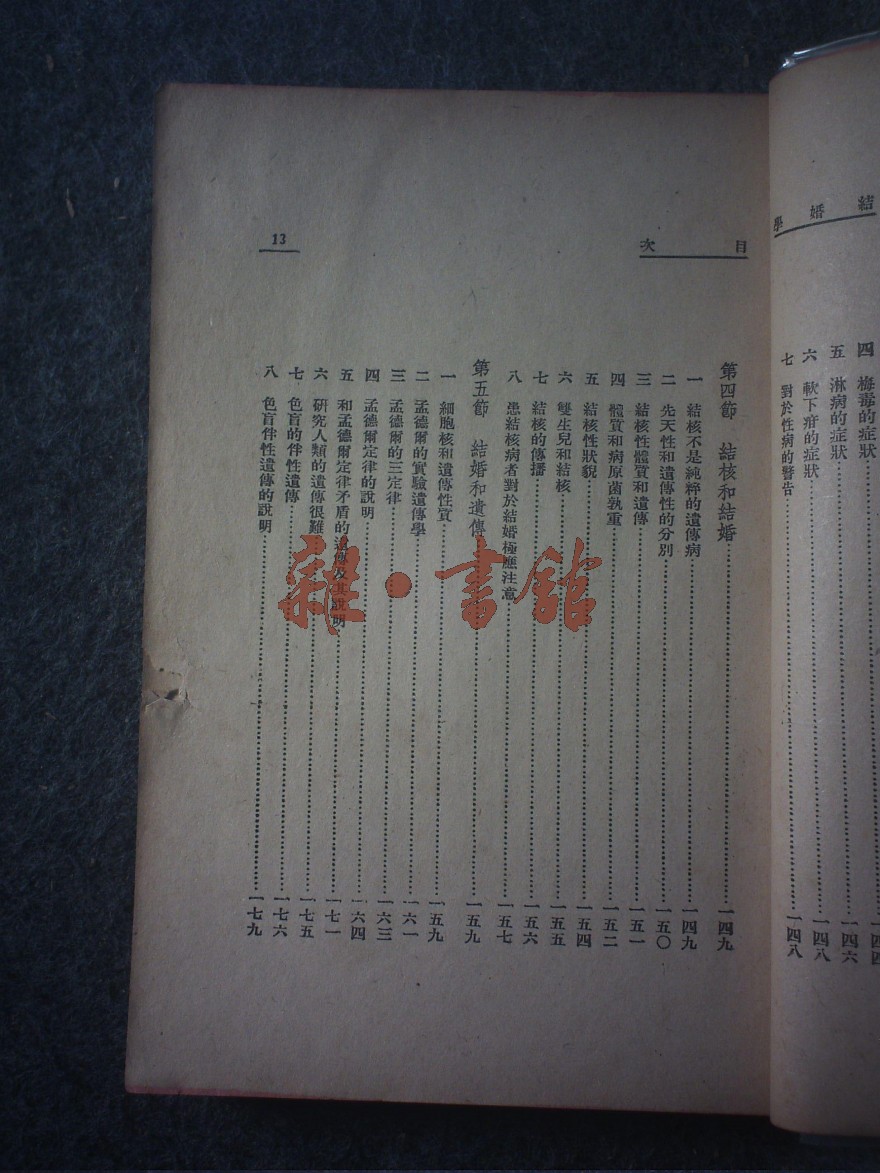 學婚結
四　梅毒的症狀…一四四
五　淋病的症狀…一四六
六　軟下疳的症狀…一四八
七　對於性病的警告…一四八
次目
13
第四節　結核和結婚…一四九
一　結核不是純粹的遺傳病…一四九
二　先天性和遺傳性的分別…一五〇
三　結核性體質和遺傳…一五一
四　體質和病原菌孰重…一五二
五　結核性狀貌…一五四
六　雙生兒和結核…一五五
七　結核的傳播…一五六
八　患結核病者對於結婚極應注意…一五七
第五節　結婚和遺傳…一五九
一　細胞核和遺傳性質…一五九
二　孟德爾的實驗遺傳學…一六一
三　孟德爾的三定律…一六三
四　孟德爾定律的說明…一六四
五　和孟德爾定律矛盾的遺傳及其說明…一七一
六　研究人類的遺傳很難…一七五
七　色盲的伴性遺傳…一七六
八　色盲伴性遺傳的說明…一七九
雜·書館